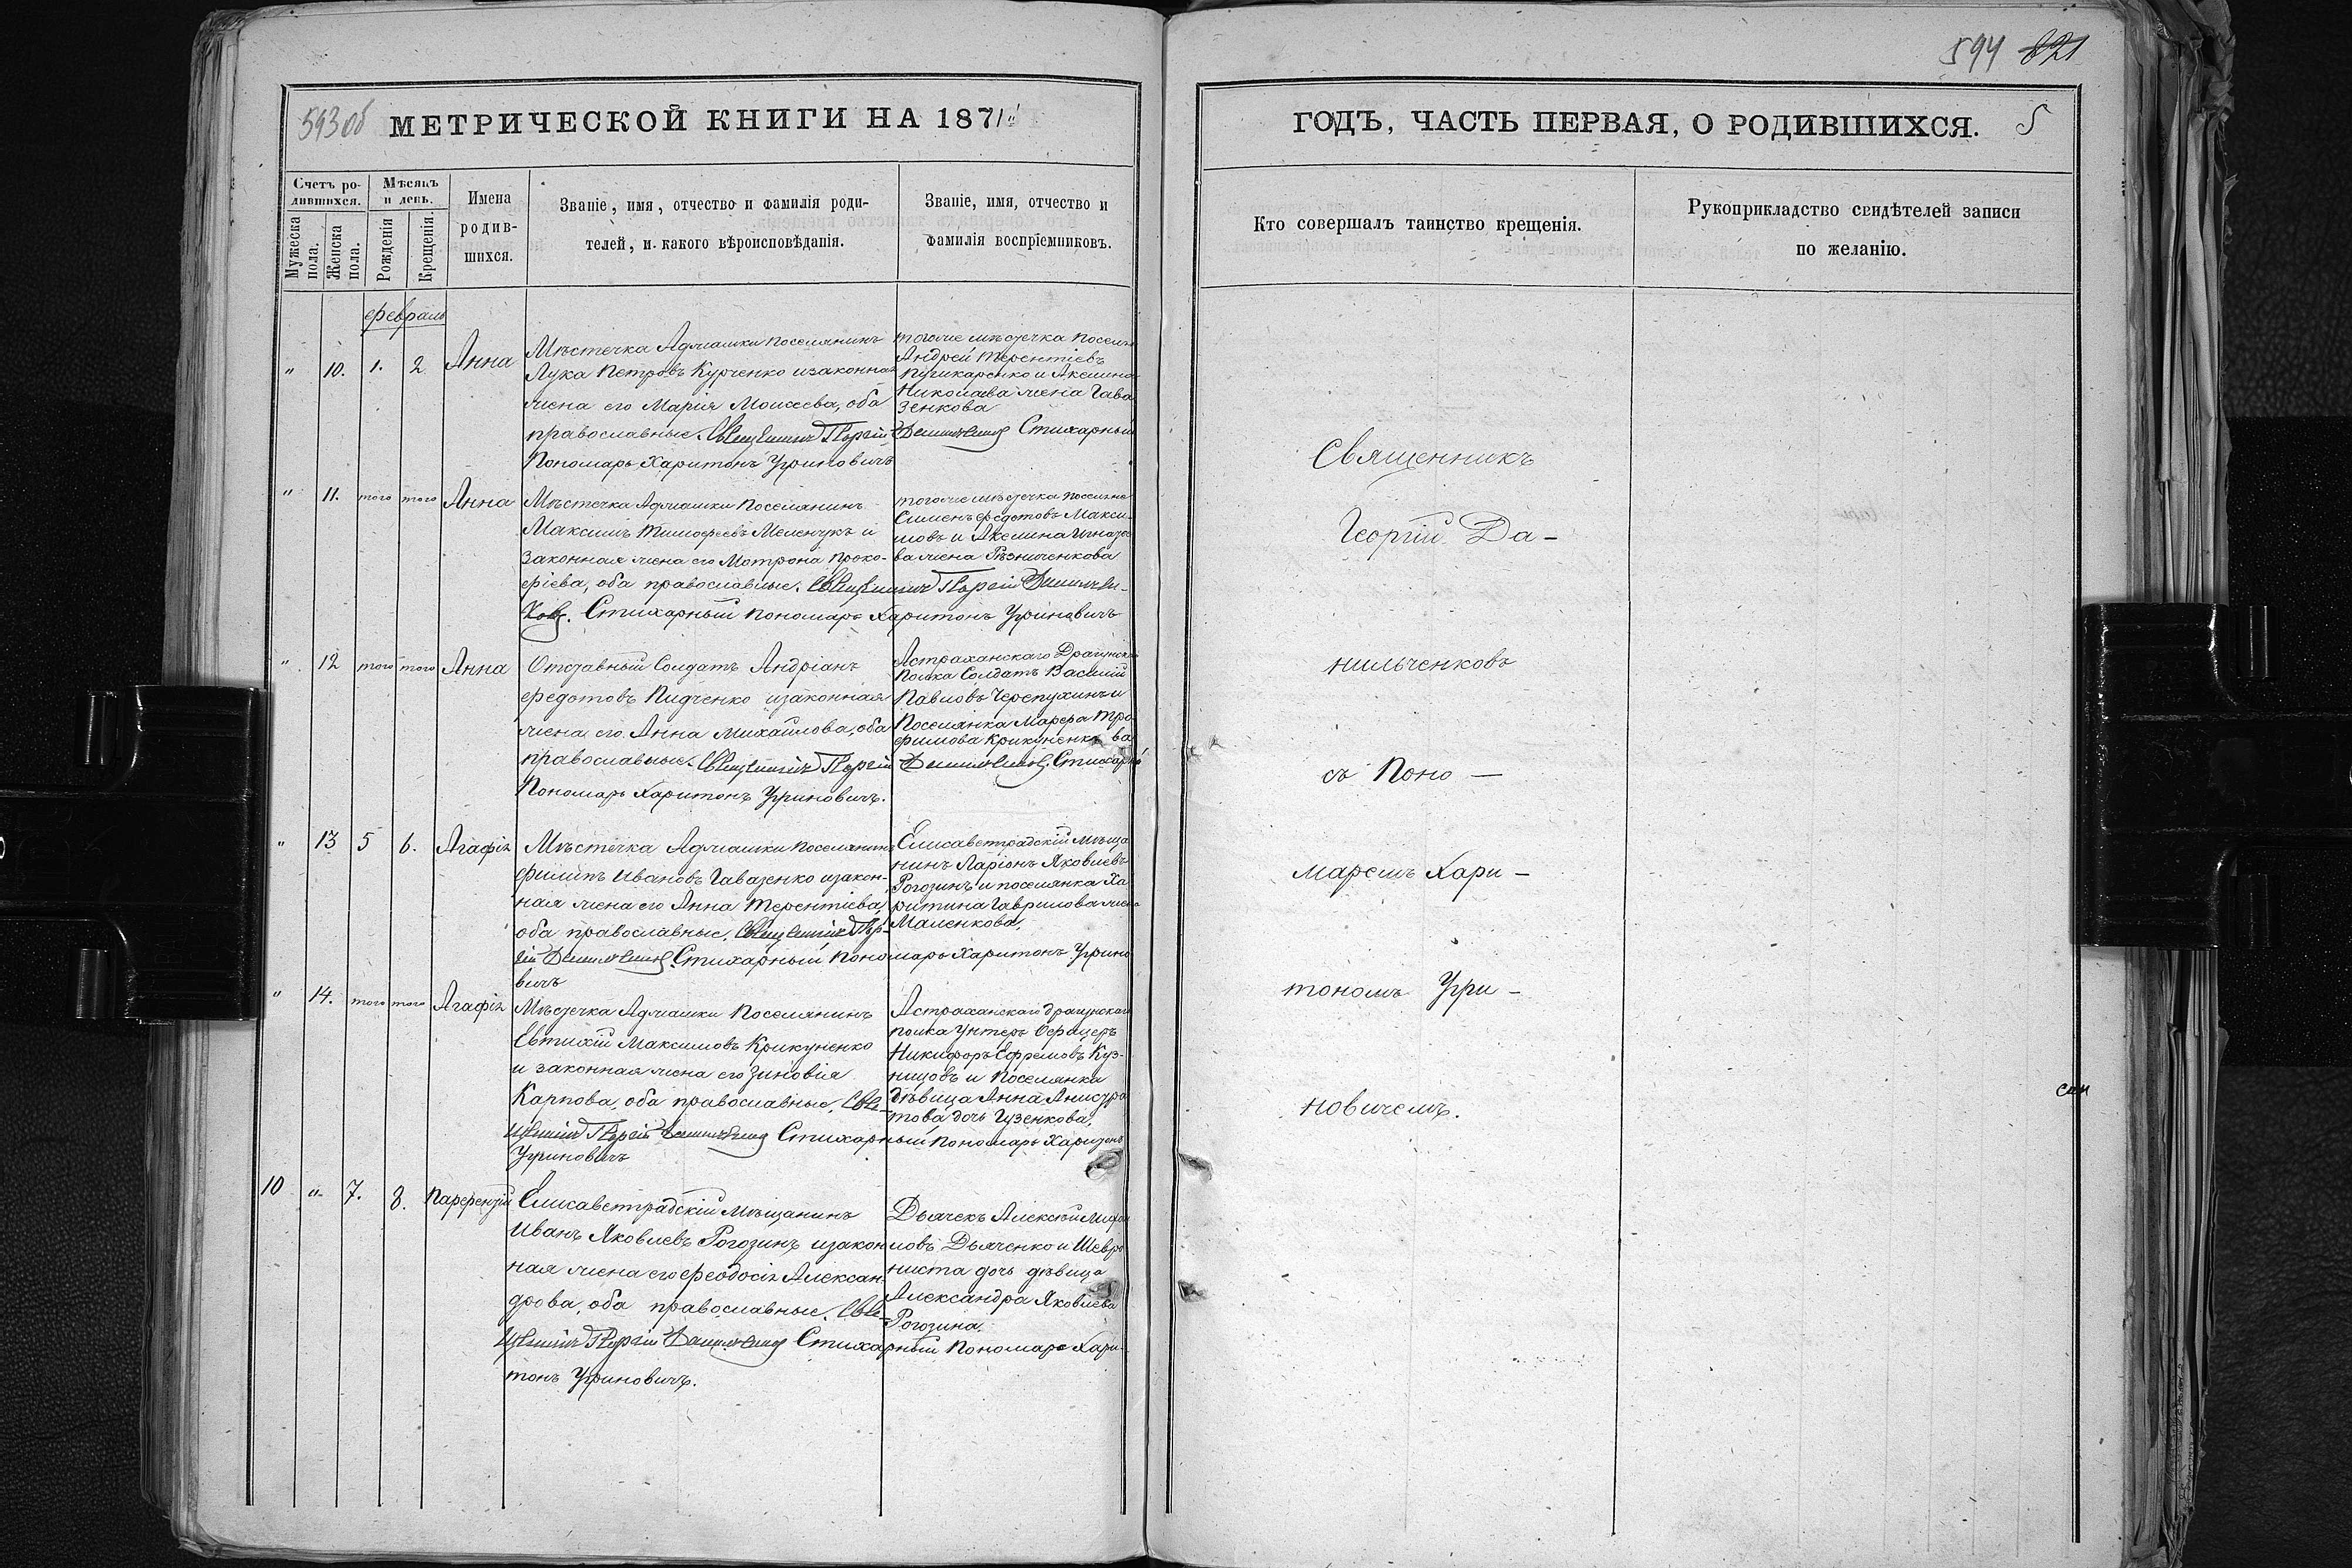 593об МЕТРИЧЕСКОЙ КНИГИ НА 1871й
Счетъ родившихся.
Мужеска пола.
Женска пола.
Мѣсяцъ и день.
Рожденія
Крещенія.
Имена родившихся.
Званіе, имя, отчество и фамилія родителей, и какого вѣроисповѣданія.
Званіе, имя, отчество и фамилія воспріемниковъ.
февраль
" 10. 1. 2 Анна
Мѣстечка Аджамки поселянинъ
Лука Петровъ Курченко изаконная
жена его Марія Моисеева, оба
православные. Священникъ Георгій Данильченковъ Стихарный
Пономарь Харитонъ Угриновичъ
тогоже мѣстечка посел
Андрей Терентіевъ
Пушкаренко и Акилина
Николаева жена Гава
зенкова
" 11. того того Анна
Мѣстечка Аджамки поселянинъ
Максимъ Тимофеевъ Меленчукъ и
законная жена его Мотрона Проко-
фіева, оба православные. Священникъ Георгій Данильчен-
ковъ. Стихарный пономарь Харитонъ Угриновичъ
тогоже мѣстечка
Симеонъ Федотовъ Макси-
мовъ и Акилина Игнать
ва жена Рѣзниченкова
" 12 того того Анна
Отставный Солдатъ Андріанъ
Федотовъ Пидченко изаконная
жена его Анна Михайлова, оба
православные. Священникъ Георгій Данильченковъ. Стихарный
Пономарь Харитонъ Угриновичъ.
Астраханскаго Драгунска
Полка Солдатъ Василій
Павловъ Черепухинъ и
Поселянка Марфа Тро
фимова Крикуненкова
" 13 5 6. Агафія
Мѣстечка Аджамки поселянинъ
Филипъ Ивановъ Гавазенко изакон-
ная жена его Анна Терентіева,
оба православные. Священникъ Геор-
гій Данильченковъ. Стихарный Пономарь Харитонъ Угрино
вичъ
Елисаветградскій мѣща
нинъ Ларіонъ Яковлевъ
Рогозинъ и поселянка Ха
ритина Гаврилова жена
Маленкова.
" 14. того того Агафія
Мѣстечка Аджамки Поселянинъ
Евтихій Максимовъ Крикуненко
и законная жена его Зиновія
Карпова, оба православные. Свя-
щенникъ Георгій Данильченковъ Стихарный Пономарь Харитонъ
Угриновичъ
Астраханскаго драгунскаго
полка Унтеръ Офицеръ
Никифоръ Ефремовъ Куз-
ницовъ и Поселянка
дѣвица Анна
това дочь Гузенкова.
10 " 7. 8. Парфентій
Елисаветградскій Мѣщанинъ
Иванъ Яковлевъ Рогозинъ изакон
ная жена его Феодосія Алексан-
дрова, оба православные. Свя-
щенникъ Георгій Данильченковъ Стихарный Пономарь Хари-
тонъ Угриновичъ.
Дьячекъ Алексѣй Михаи
ловъ Дьяченко и Шевро
ниста дочь дѣвица
Александра Яковлева
Рогозина.
594 821
ГОДЪ, ЧАСТЬ ПЕРВАЯ, О РОДИВШИХСЯ. 5
Кто совершалъ таинство крещенія.
Рукоприкладство свидѣтелей записи по желанію.
Священникъ
Георгій Да-
нильченковъ
съ Поно-
маремъ Хари-
тономъ Угри-
новичемъ.